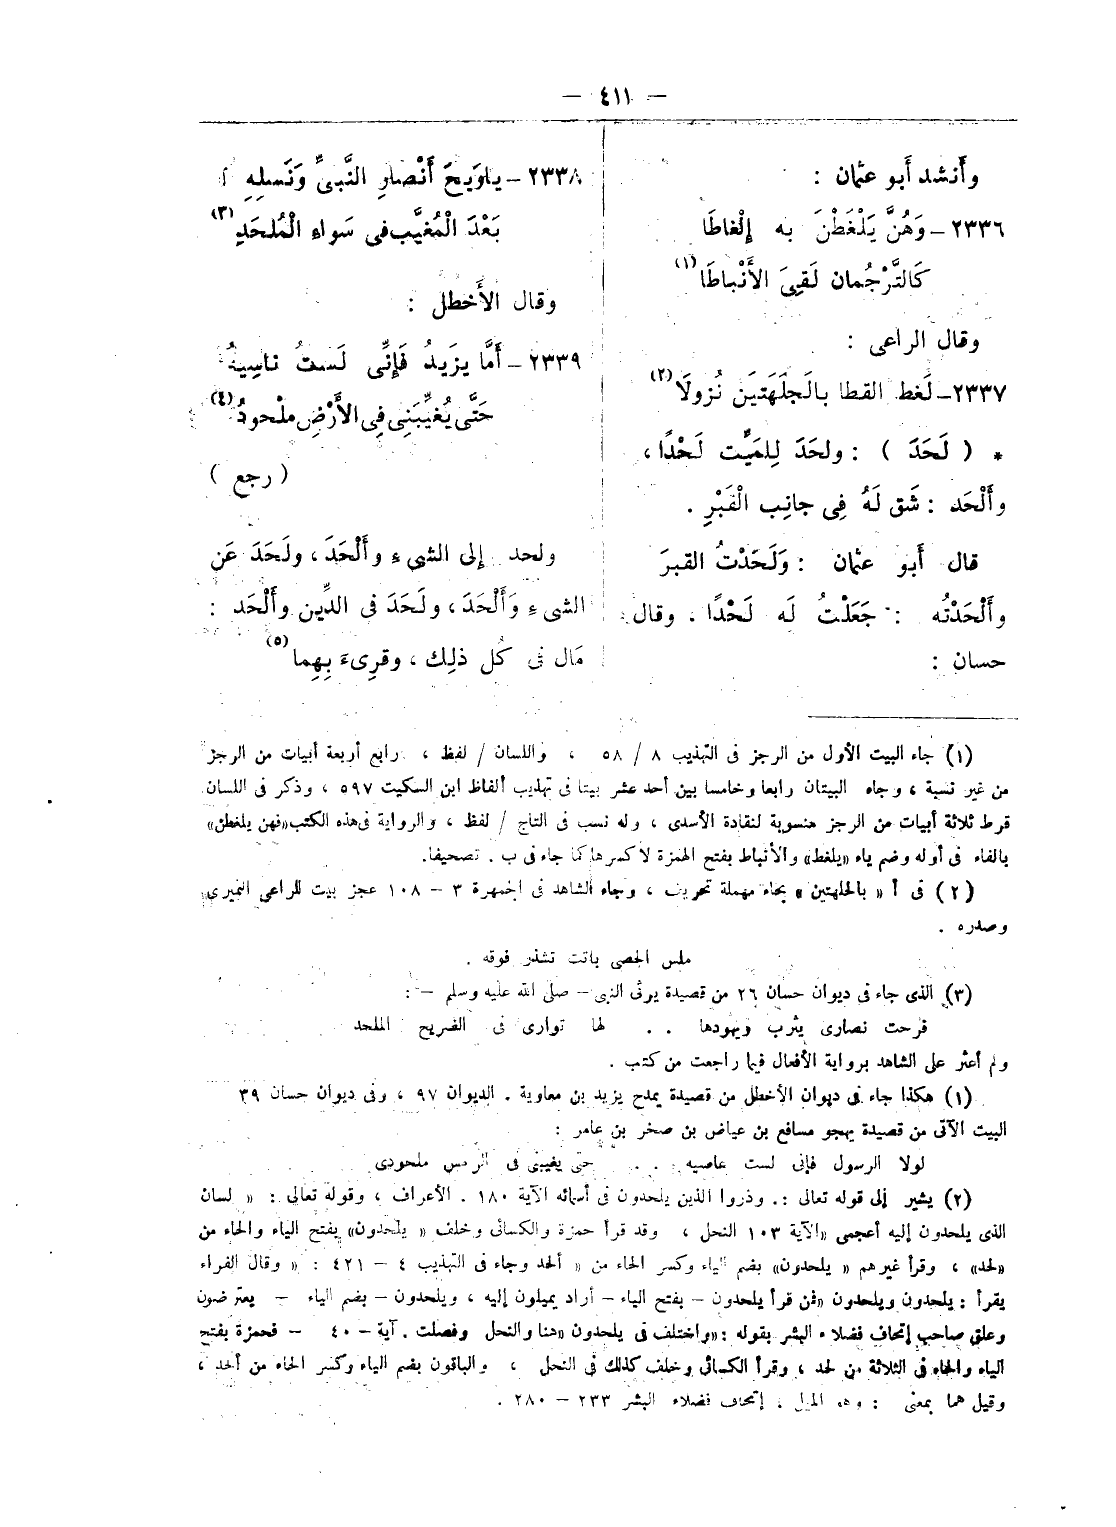 — ٤١١ —
وأَنشد أَبو عثمان :
٢٣٣٦ – وَهُنَّ يَلْغَطْنَ به إِلْغاطَا
كَالتَّرْجُمان لَقِىَ الأَنْباطَا (١)
وقال الراعى :
٢٣٣٧ – لَغط القطا بالَجلَهَتَين نُزولَا (٢)
* ( لَحَدَ ) : ولحَدَ لِلمَيِّت لَحْدًا ،
وأَلْحَد : شَق لَهُ فِى جانِب الْقَبْرِ .
قال أَبو عثمان : وَلَحَدْتُ القبرَ
وأَلْحَدْتُه : جَعَلْتُ لَه لَحْدًا . وقال
حسان :
٢٣٣٨ – ياوَيحَ أَنْصارِ النَّبىِّ وَنَسلِهِ
بَعْدَ الْمُغيَّب فى سَواءِ الْمُلحَدِ (٣)
وقال الأَخطل :
٢٣٣٩ – أَمَّا يزيدُ فَإِنِّى لَستُ ناسِيهُ
حَتَّى يُغيِّبَنِى فِى الأَرْضِ ملْحودُ (٤)
( رجع )
ولحد إلى الشىءِ وأَلْحَدَ ، ولَحَدَ عَن
الشىءِ وَأَلْحَدَ ، ولَحَدَ فى الدِّين وأَلْحَد :
مَال فى كُل ذلِك ، وقرِىءَ بِهِما (٥)
(١) جاء البيت الأول من الرجز فى التهذيب ٨ / ٥٨ ، واللسان / لفظ ، رابع أربعة أبيات من الرجز
من غير نسبة ، وجاء البيتان رابعا وخامسا بين أحد عشر بيتا فى تهذيب ألفاظ ابن السكيت ٥٩٧ ، وذكر فى اللسان
قرط ثلاثة أبيات من الرجز منسوبة لنقادة الأسدى ، وله نسب فى التاج / لفظ ، والرواية فى هذه الكتب «فهن يلغطن»
بالفاء فى أوله وضم ياء «يلغط» والأنباط بفتح الهمزة لا كسرها كما جاء فى ب . تصحيفا.
(٢) فى أ « بالحلهتين » بحاء مهملة تحريف ، وجاء الشاهد فى الجمهرة ٣ – ١٠٨ عجز بيت للراعى النميرى
وصدره .
ملس الحصى باتت تشذر فوقه .
(٣) الذى جاء فى ديوان حسان ٢٦ من قصيدة يرثى النبى – صلى الله عليه وسلم – :
فرحت نصارى يثرب ويهودها . . لما توارى فى الضريح الملحد
ولم أعثر على الشاهد برواية الأفعال فيما راجعت من كتب .
(١) هكذا جاء فى ديوان الأخطل من قصيدة يمدح يزيد بن معاوية . الديوان ٩٧ ، وفى ديوان حسان ٣٩
البيت الآتى من قصيدة يهجو مسافع بن عياض بن صخر بن عامر :
لولا الرسول فإنى لست عاصيه . . . حتى يغيبنى فى الرمس ملحودى
(٢) يشير إلى قوله تعالى :. وذروا الذين يلحدون فى أسمائه الآية ١٨٠ . الأعراف ، وقوله تعالى : « لسان
الذى يلحدون إليه أعجمى «الآية ١٠٣ النحل ، وقد قرأ حمزة والكسائى وخلف « يلحدون» بفتح الياء والحاء من
«لحد» ، وقرأ غيرهم « يلحدون» بضم الياء وكسر الحاء من « ألحد وجاء فى التهذيب ٤ – ٤٢١ : « وقال الفراء
يقرأ : يلحدون ويلحدون «فمن قرأ يلحدون – بفتح الياء – أراد يميلون إليه ، ويلحدون – بضم الياء – يعترضون
وعلق صاحب إتحاف فضلاء البشر بقوله : «واختلف فى يلحدون «هنا والنحل وفصلت . آية – ٤٠ – فحمزة بفتح
الياء والحاء فى الثلاثة من لحد ، وقرأ الكسائى وخلف كذلك فى النحل ، والباقون بضم الياء وكسر الحاء من ألحد ،
وقيل هما بمعنى : وهو الميل . إتحاف فضلاء البشر ٢٣٣ – ٢٨٠ .